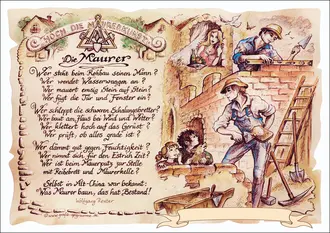 HOCH DIE MAURERKUNST
Die Maurer
Wer steht beim Rohbau seinen Mann?
Wer wendet Wasserwaagen an?
Wer mauert emsig Stein auf Stein?
Wer fügt die Tür und Fenster ein?
Wer schleppt die schweren Schalungsbretter?
Wer baut am Haus bei Wind und Wetter?
Wer klettert hoch auf das Gerüst?
Wer prüft, ob alles grade ist?
Wer dämmt gut gegen Feuchtigkeit?
Wer nimmt sich für den Estrich Zeit?
Wer ist beim Mauerputz zur Stelle
mit Reibebrett und Maurerkelle?
Selbst in Alt-China war bekannt:
"Was Maurer baun, das hat Bestand!